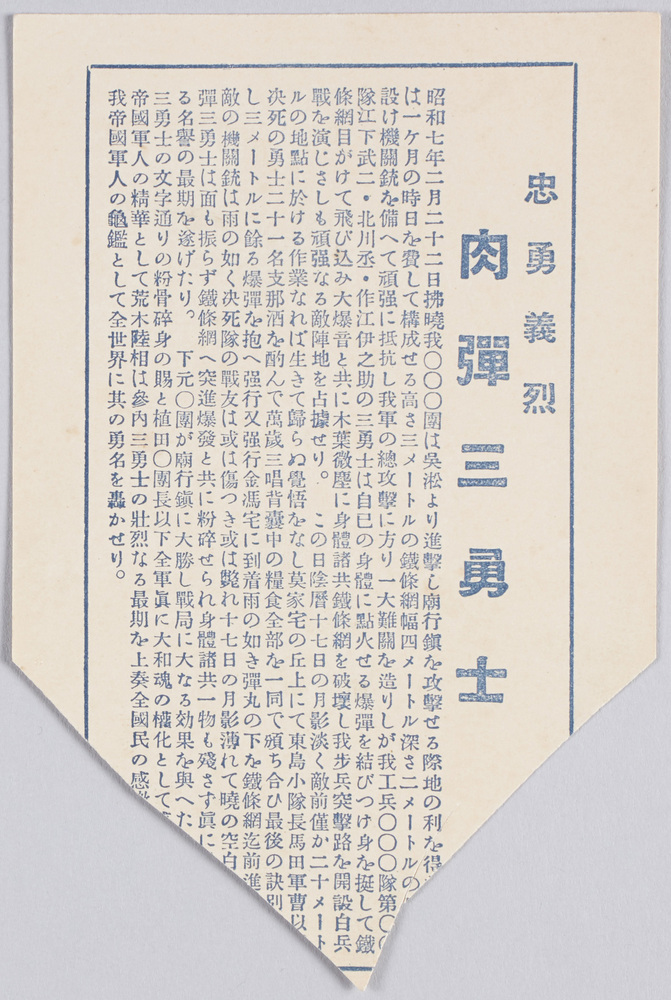 忠勇義烈
肉彈三勇士
昭和七年二月二十二日拂曉我〇〇〇團は吳淞より進擊し廟行鎭を攻擊せる際地の利を得
は一ケ月の時日を費して構成せる高さ三メートルの鐵條網幅四メートル深さ二メートルの
設け機關銃を備へて頑强に抵抗し我軍の總攻擊に方り一大難關を造りしが我工兵〇〇〇隊第〇〇
隊江下武二・北川丞・作江伊之助の三勇士は自巳の身體に點火せる爆彈を結びつけ身を挺して鐵
條網目がけて飛び込み大爆音と共に木葉微塵に身體諸共鐵條網を破壞し我步兵突擊路を開設白兵
戰を演じさしも頑强なる敵陣地を占據せり。この日陰曆十七日の月影淡く敵前僅か二十メート
ルの地點に於ける作業なれば生きて歸らぬ覺悟をなし莫家宅の丘上にて東島小隊長馬田軍曹以
決死の勇士二十一名支那酒を酌んで萬歲三唱背囊中の糧食全部を一同で頒ち合ひ最後の訣別
し三メートルに餘る爆彈を抱へ强行又强行金馮宅に到着雨の如き彈丸の下を鐵條網迄前進
敵の機關銃は雨の如く決死隊の戰友は或は傷つき或は斃れ十七日の月影薄れて曉の空白
彈三勇士は面も振らず鐵條網へ突進爆發と共に粉碎せられ身體諸共一物も殘さす眞に
る名譽の最期を遂げたり。下元〇團が廟行鎭に大勝し戰局に大なる効果を與へた
三勇士の文字通りの粉骨碎身の賜と植田〇團長以下全軍眞に大和魂の權化として
帝國軍人の精華として荒木陸相は參內三勇士の壯烈なる最期を上奏全國民の感
我帝國軍人の龜鑑として全世界に其の勇名を轟かせり。